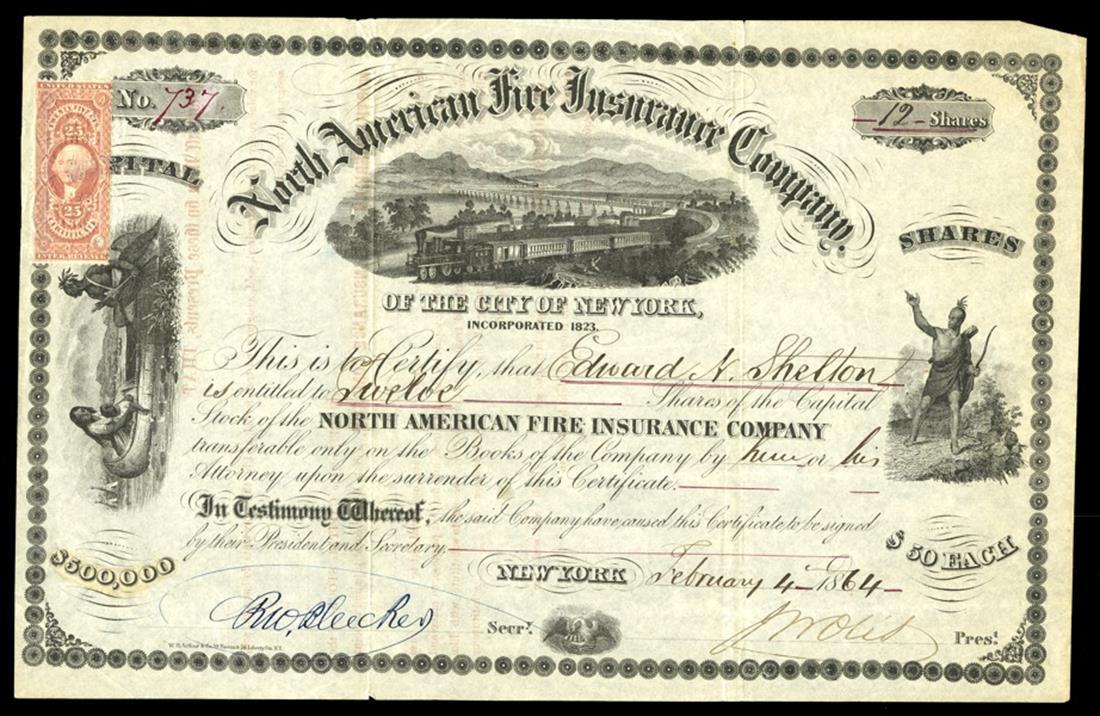 No. 737.
12 Shares
UNITED STATES
TWENTY FIVE CTS
25
25
CERTIFICATE
INTER. REVENUE
North American Fire Insurance Company.
OF THE CITY OF NEW YORK,
INCORPORATED 1823.
PITAL
SHARES
This is to Certify, that Edward N. Shelton
is entitled to Twelve Shares of the Capital
Stock of the NORTH AMERICAN FIRE INSURANCE COMPANY
transferable only on the Books of the Company by him or his
Attorney upon the surrender of this Certificate.
In Testimony Whereof, the said Company have caused this Certificate to be signed
by their President and Secretary.
$500,000
$50 EACH
NEW YORK February 4 1864
R W Bleecker Secry.
Prest.